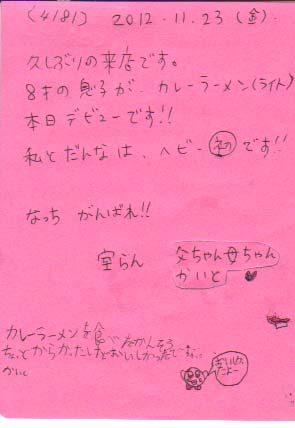 (4181) 2012.11.23(金).
久しぶりの来店です。
8才の息子が、カレーラーメン(ライト)
本日デビューです!!
私とだんなは、ヘビー初です!!
なっち がんばれ!!
室らん 父ちゃん母ちゃん
かいと
カレーラーメンを食べたかんそう
ちょっとからかったけどおいしかったでーす。
かいと
おいしかったよー